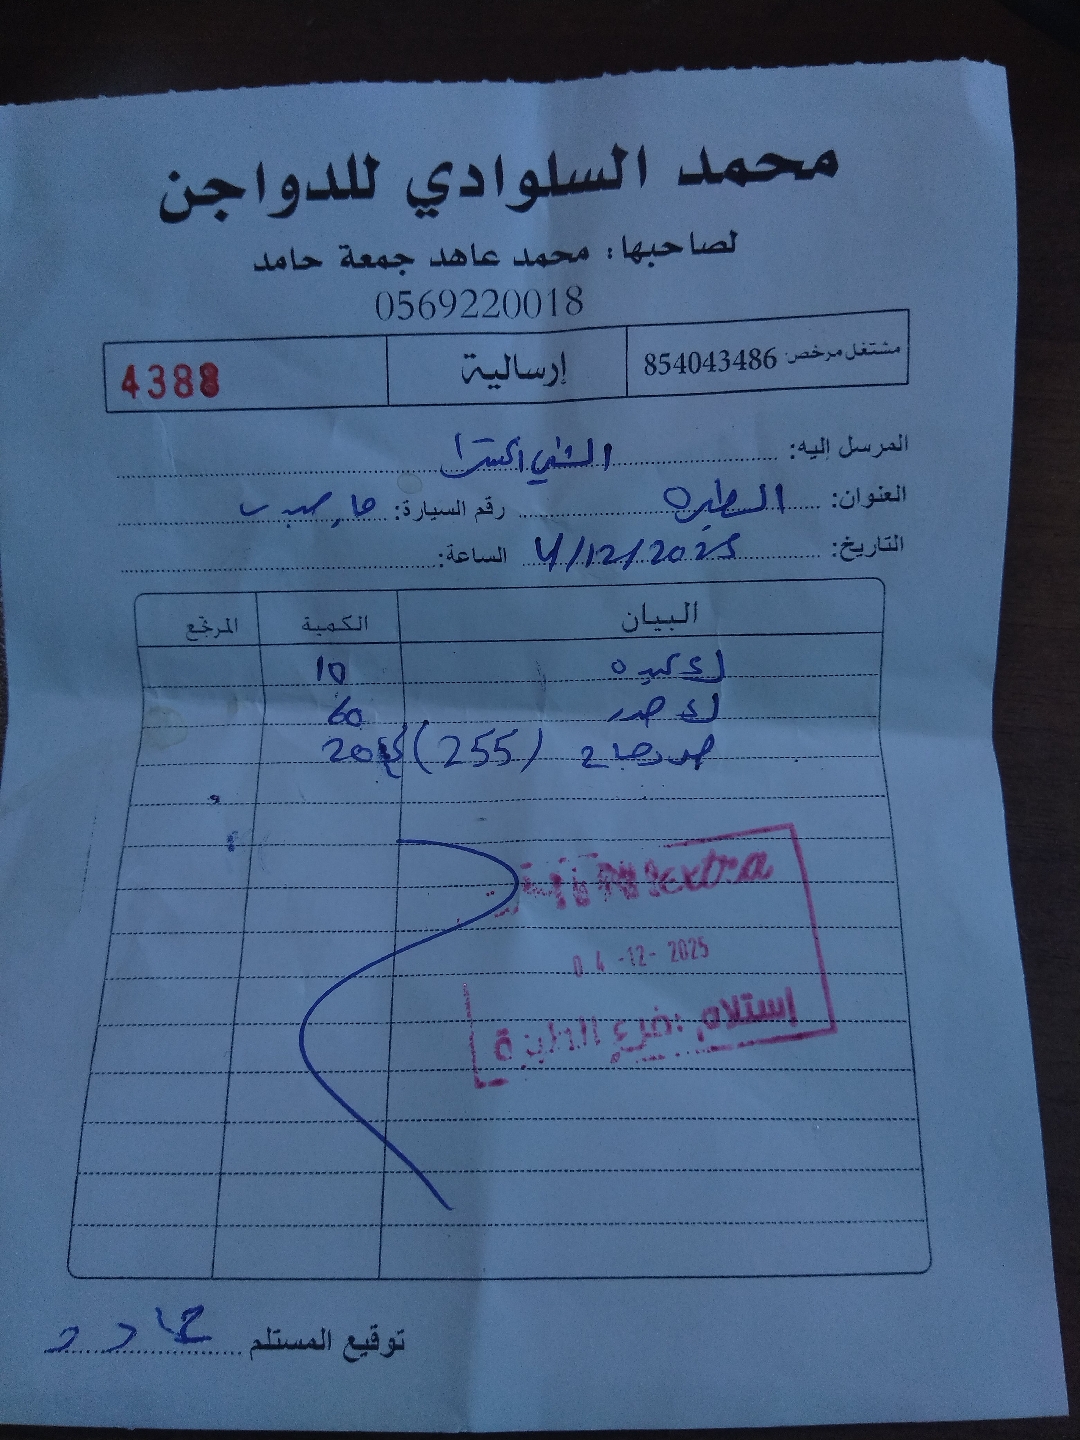 محمد السلوادي للدواجن
لصاحبها: محمد عاهد جمعة حامد
0569220018
مشتغل مرخص: 854043486 إرسالية 4388
المرسل إليه: الشني اكسترا
العنوان: الطيره رقم السيارة:
التاريخ: 4/12/2025 الساعة:
البيان الكمية المرتجع
ك كبده 10
ك صدر 60
(255) 20
extra
04-12-2025
إستلام: فرع الطيرة
توقيع المستلم